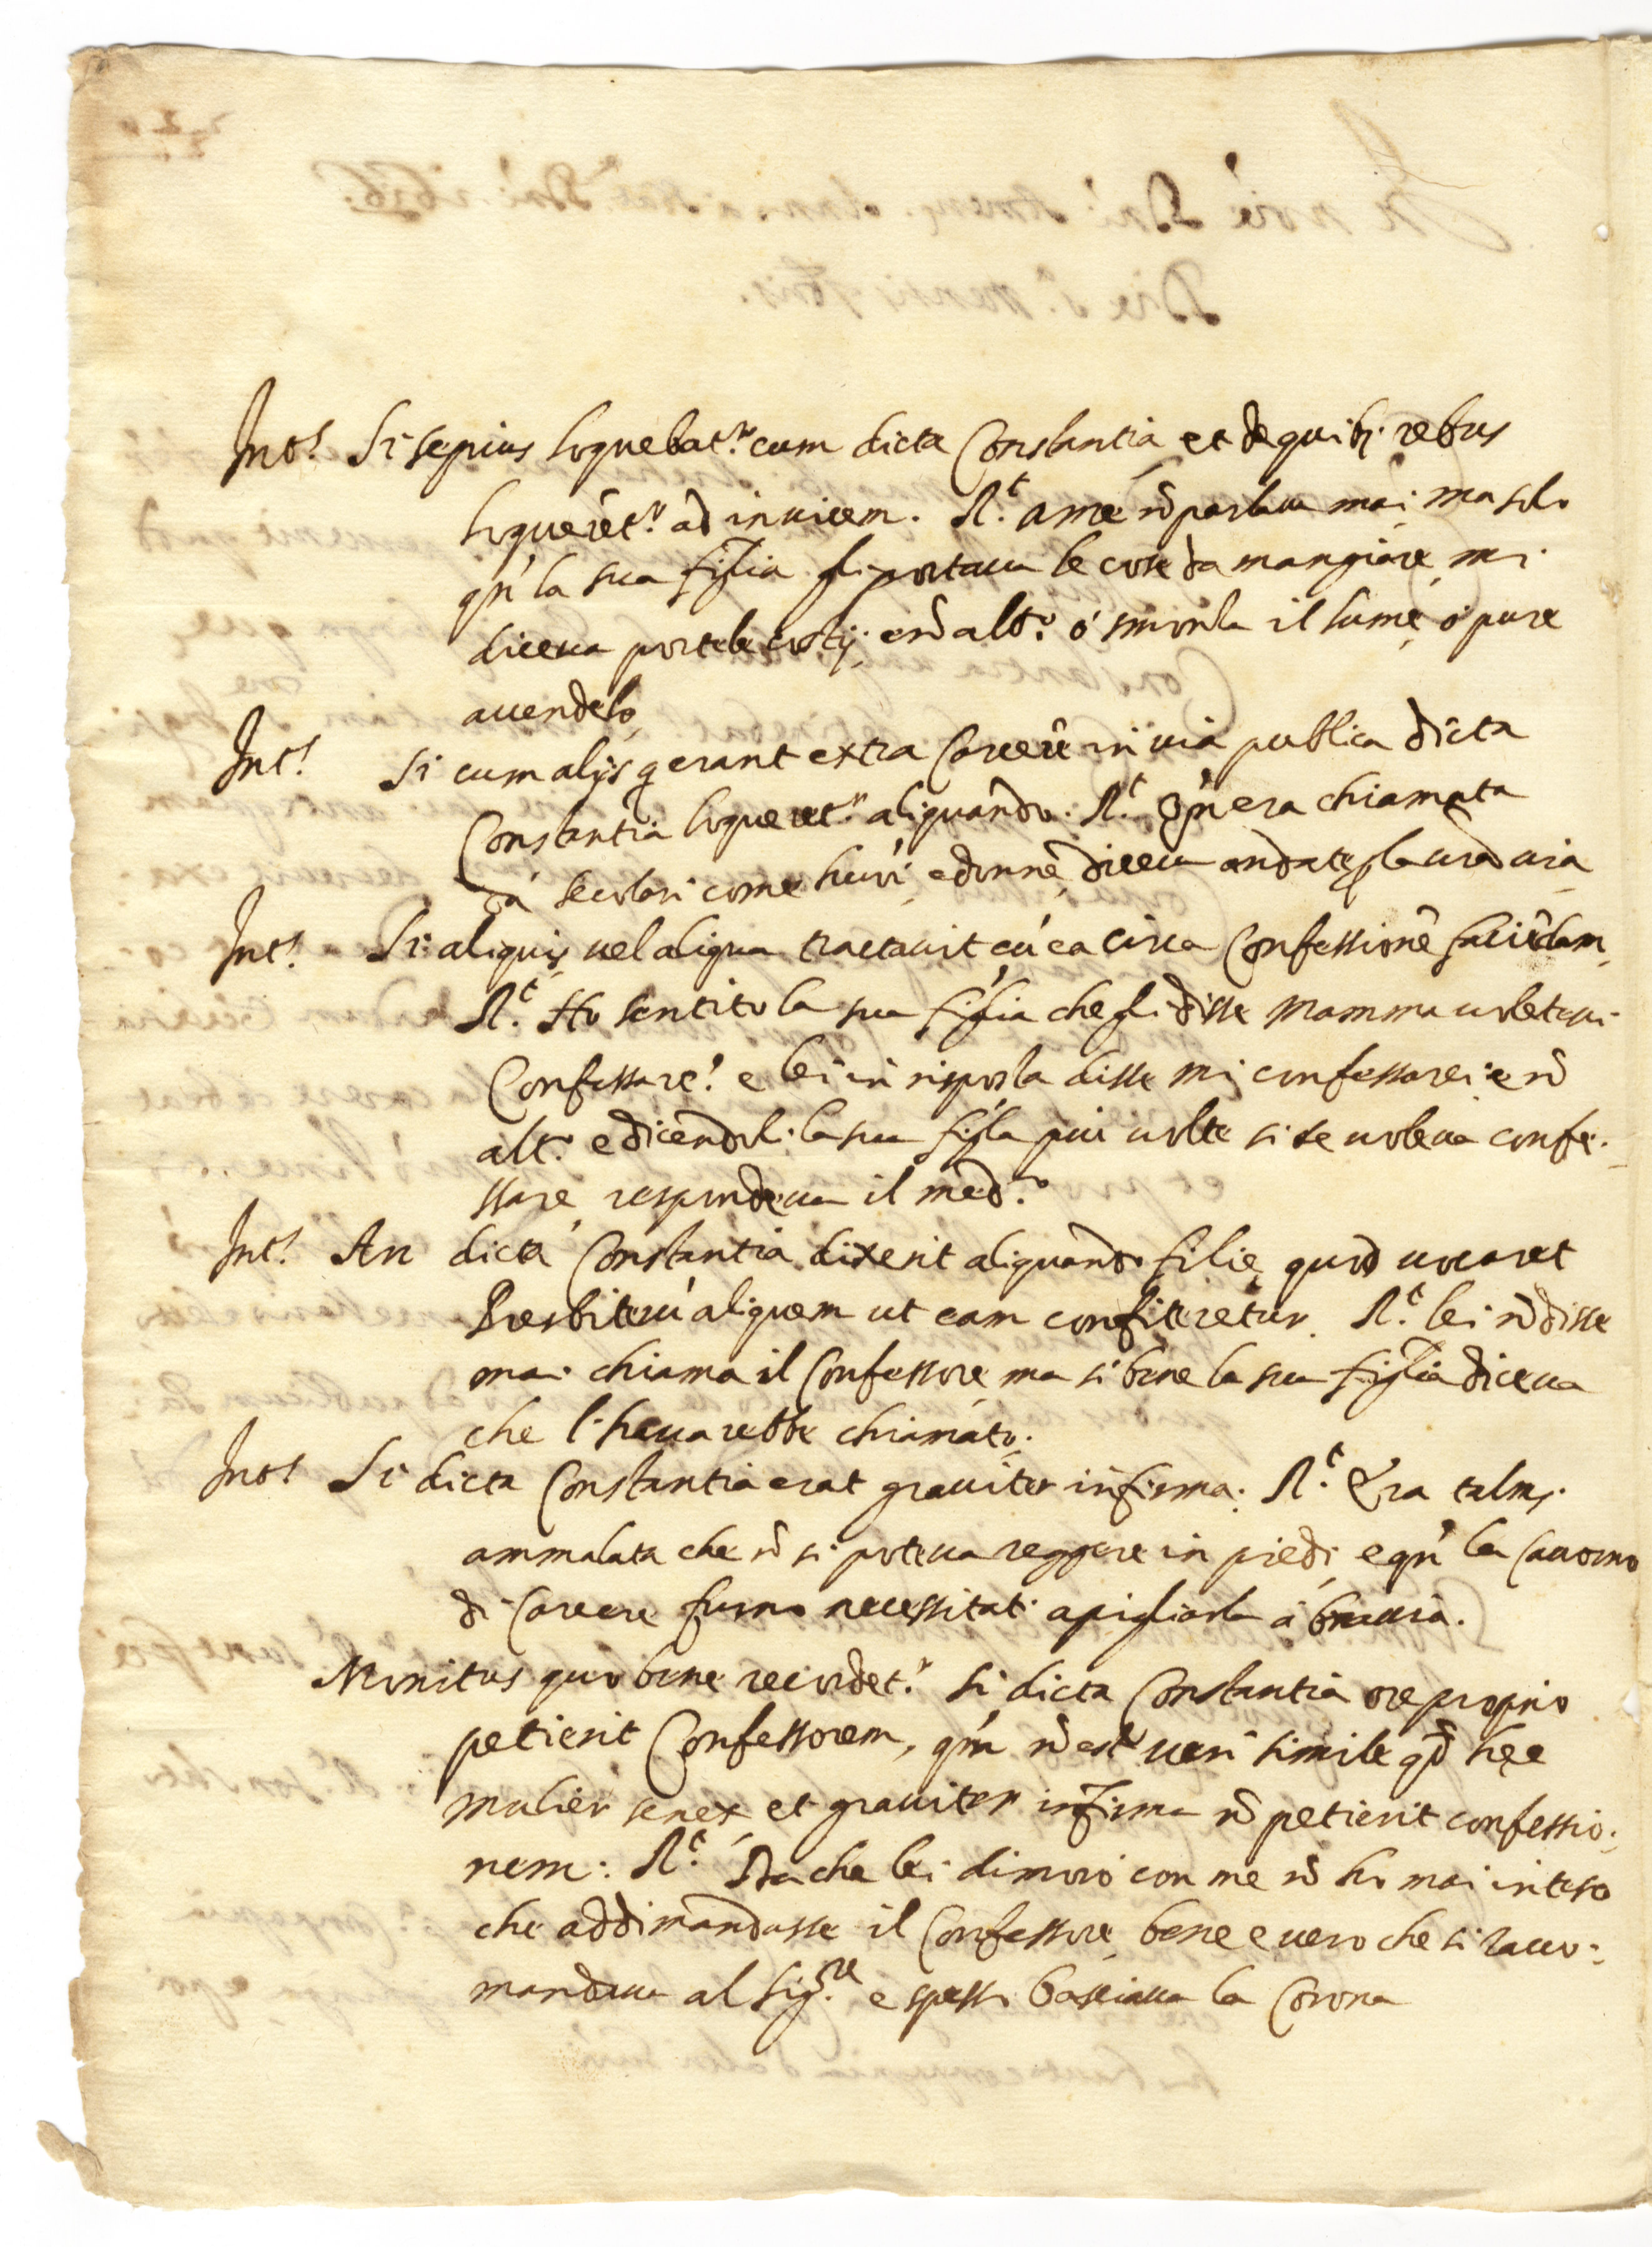 Int.s Si sepius loquebat.r cum dicta Constantia et de quib; rebus
loquerēt.r ad inuicem. R.t a me nō parlaua mai ma solo
qn' la sua figlia gli portaua le cose da mangiare mi
diceua portele costij; e nō alt.o ó smorsa il lume, o pure
accendelo
Int.s Si cum alijs q erant extra Carcerē in uia publica dicta
Constantia loqueret.r aliquando. R.t Qn' era chiamata
da secolari come huoi, e donne, diceua andate p la urā uia
Int.s Si aliquis uel aliqua tractauit cū ea circa Confessionē faciēdam,
R.t Ho sentito la sua figlia che gli disse Mamma uoleteui
Confessare? e lei in risposta disse mi confessarei: e nō
alt.o e dicendoli la sua figla piu uolte si se uoleua confe-
ssare, respondeua il med.o
Int.s An dicta Constantia dixerit aliquando filie quod uocaret
Presbiterū aliquem ut eam confiteretur. R.t lei nō disse
mai chiama il Confessore ma si bene la sua figlia diceua
che l'hauarebbe chiamato.
Int.s Si dicta Constantia erat grauiter infirma. R.t Era talm.
ammalata che nō si poteua reggere in piedi, e qn' la cauorno
di Carcere furno necessitati a pigliarla á braccia.
Monitus quo bene recordet.r si dicta Constantia ore proprio
petierit Confessorem, qm nō est ueri simile qd hec
mulier senex et grauiter infirma nō petierit confessio-
nem: R.t Da che lei dimoró con me nō ho mai inteso
che addimandasse il Confessore, bene e uero che si racco-
mandaua al Sig.re e spesso basciaua la Corona